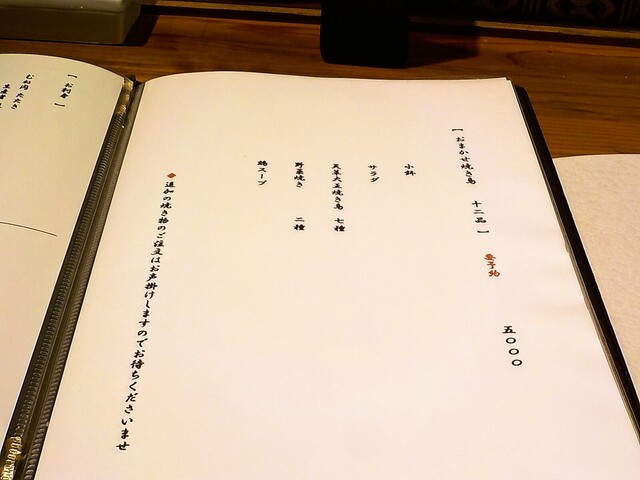 【おまかせ焼き鳥 十二品】 要予約 五〇〇〇
小鉢
サラダ
天草大王焼き鳥 七種
野菜焼き 二種
鶏スープ
◆追加の焼き物のご注文はお声掛けしますのでお待ちくださいませ
【お刺身】
むね肉 たたき